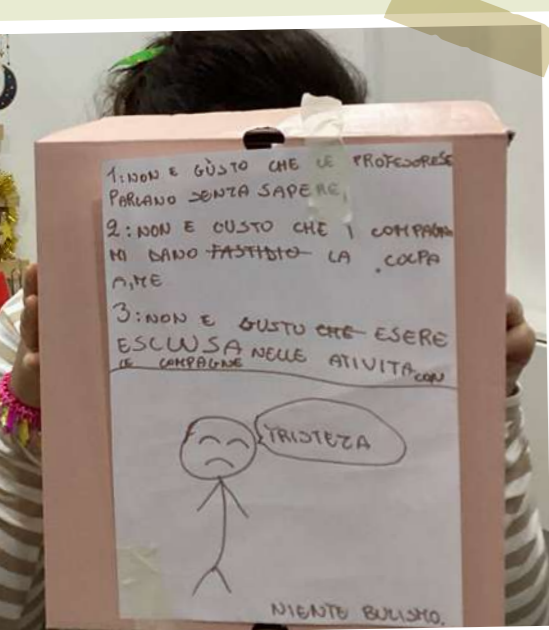 1: NON E GÙSTO CHE LE PROFESORESE
PARLANO SENZA SAPERE,
2: NON E GUSTO CHE I COMPAGNI
MI DANO FASTIDIO LA COLPA
A,ME
3: NON E GUSTO CHE ESERE
ESCLUSA NELLE ATIVITA CON
LE COMPAGNE
TRISTEZA
NIENTE BULISMO.